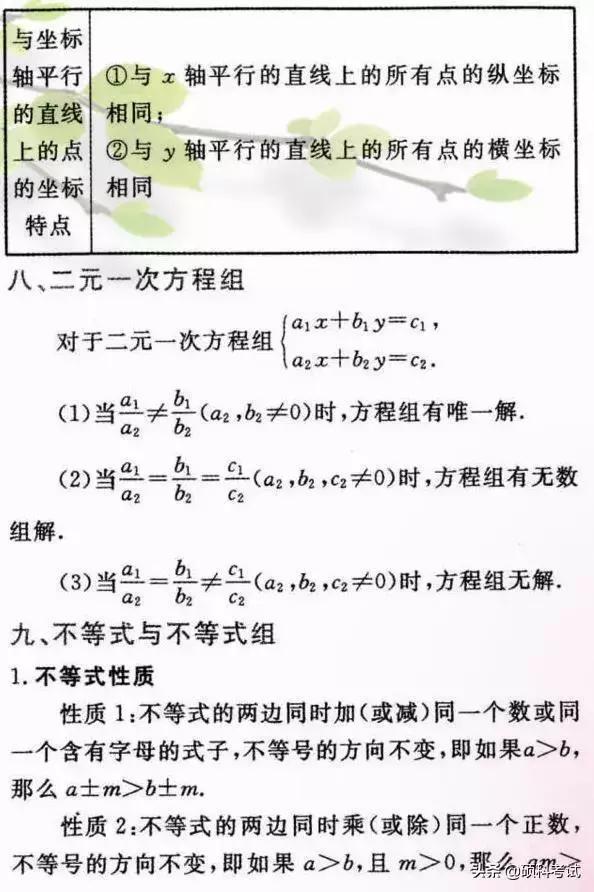 与坐标
轴平行
的直线
上的点
的坐标
特点
①与 x 轴平行的直线上的所有点的纵坐标
相同;
②与 y 轴平行的直线上的所有点的横坐标
相同
八、二元一次方程组
对于二元一次方程组{a₁x+b₁y=c₁,
a₂x+b₂y=c₂.
(1)当a₁/a₂≠b₁/b₂(a₂,b₂≠0)时,方程组有唯一解.
(2)当a₁/a₂=b₁/b₂=c₁/c₂(a₂,b₂,c₂≠0)时,方程组有无数
组解.
(3)当a₁/a₂=b₁/b₂≠c₁/c₂(a₂,b₂,c₂≠0)时,方程组无解.
九、不等式与不等式组
1.不等式性质
性质 1:不等式的两边同时加(或减)同一个数或同
一个含有字母的式子,不等号的方向不变,即如果a>b,
那么 a±m>b±m.
性质 2:不等式的两边同时乘(或除)同一个正数,
不等号的方向不变,即如果 a>b,且 m>0,那么 am>
头条 @硕科考试